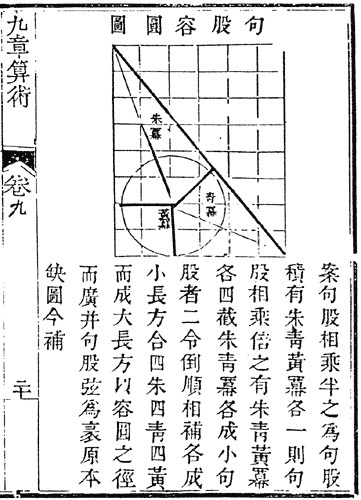 句股容圓圖
朱冪
青冪
黃冪
案句股相乘半之爲句股
積有朱青黃冪各一則句
股相乘倍之有朱青黃冪
各四截朱青冪各成小句
股者二令倒順相補各成
小長方合四朱四青四黃
而成大長方以容圓之徑
而廣并句股弦爲袤原本
缺圖今補
九章算術
卷九
二七